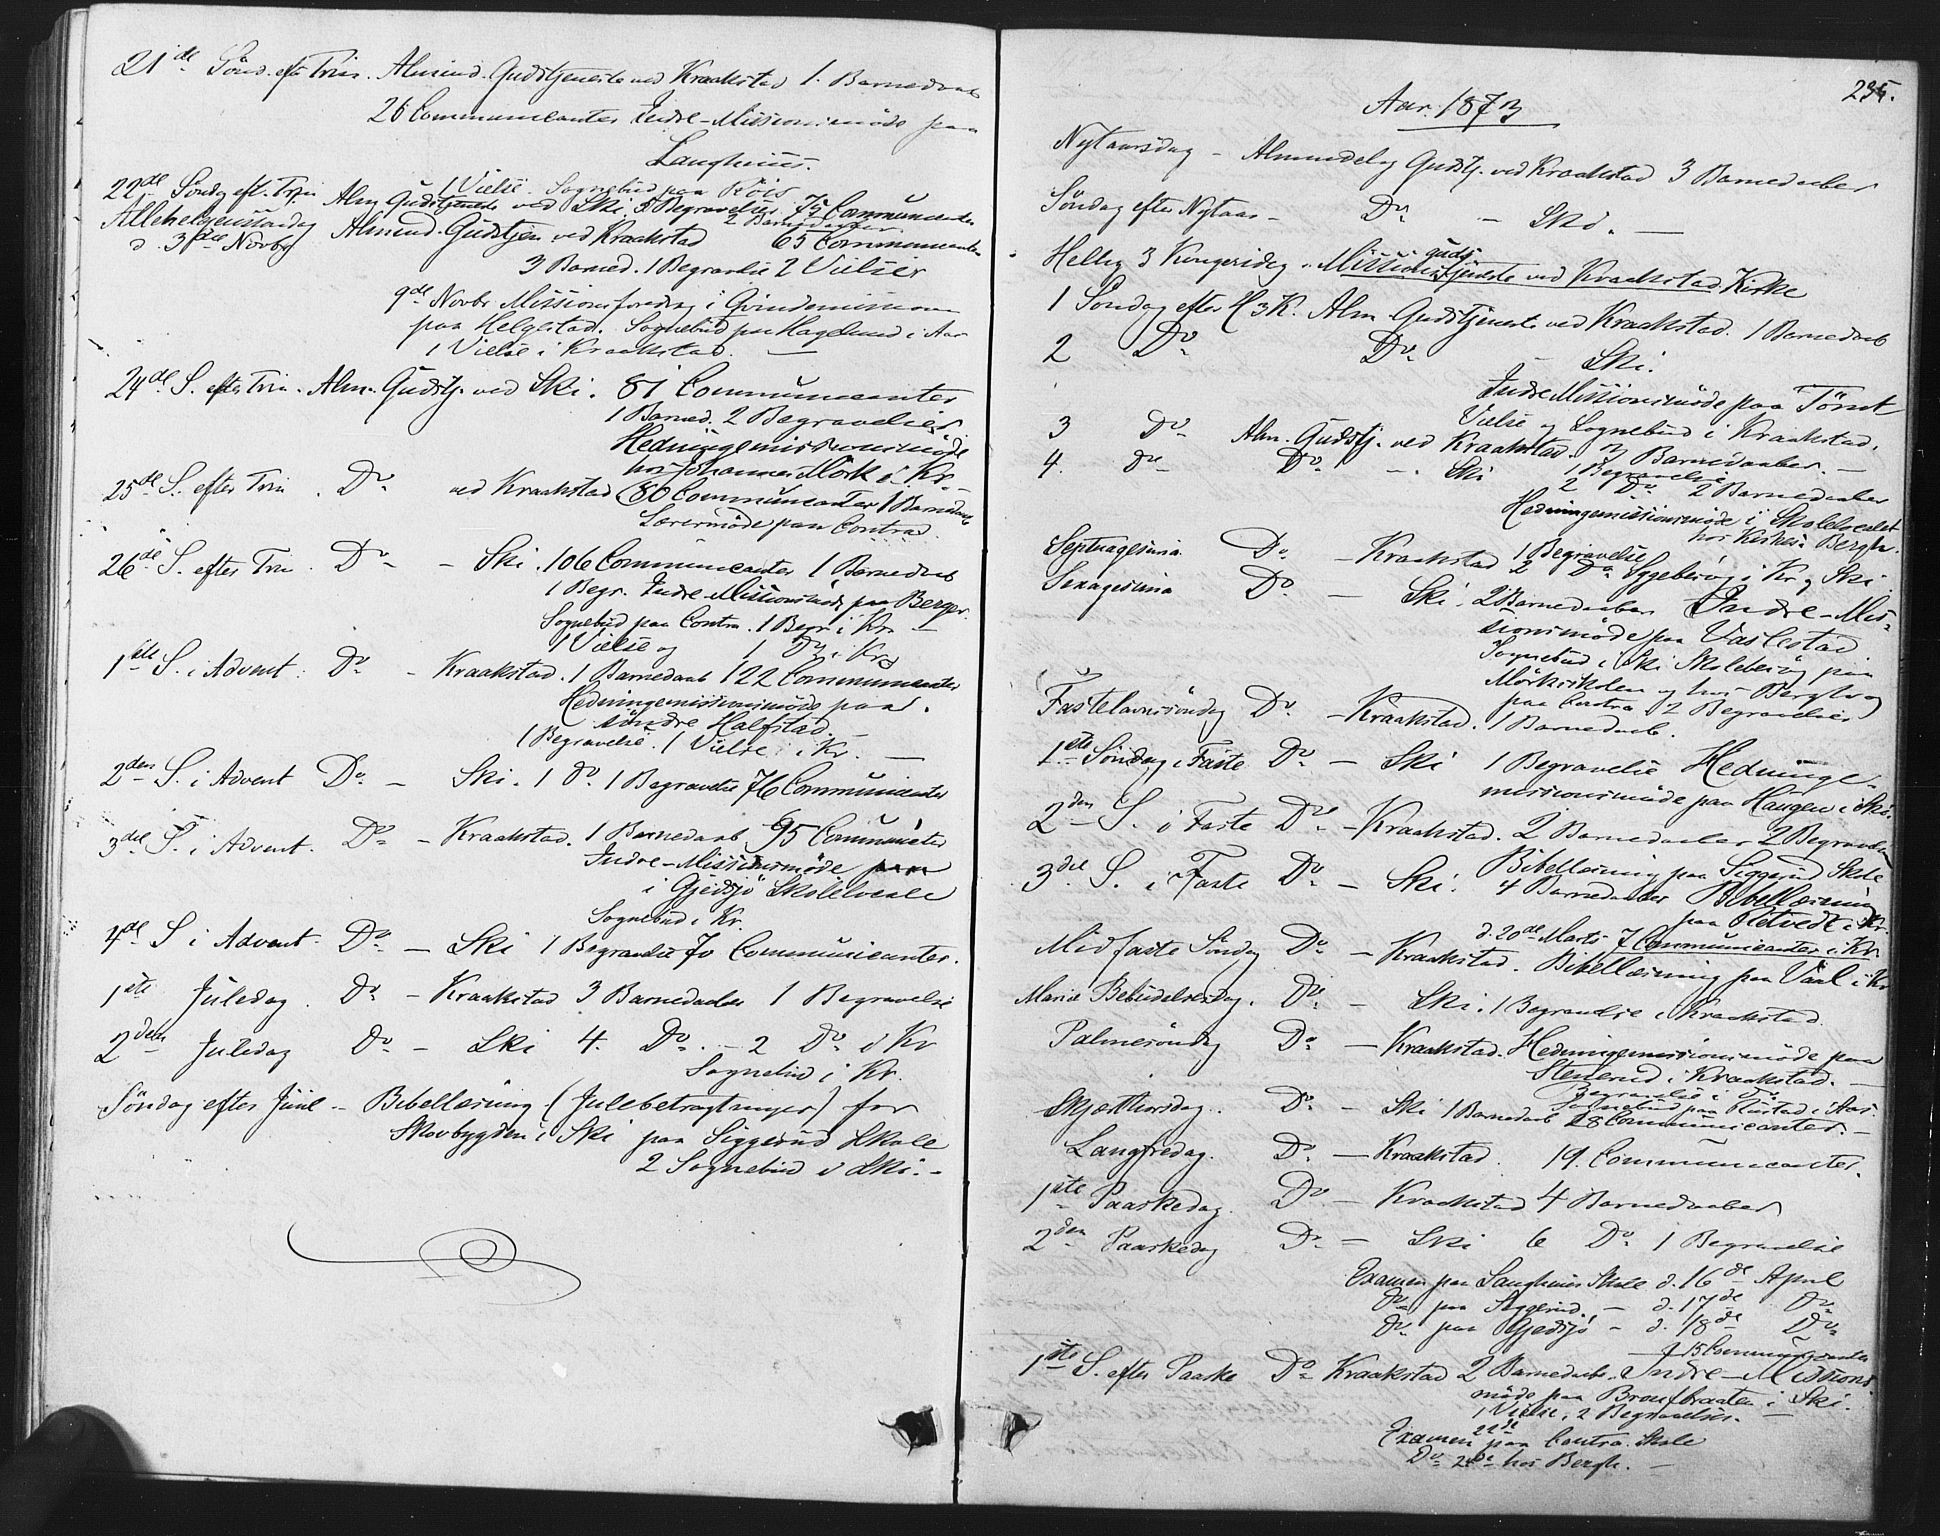 21de Sønd. eft Trin. Almind. Gudstjeneste ved Kraakstad 1. Barnedaab
26 Communicanter Indre-Missionsmøde paa
Langhuus.
1 Vielse. Sognebud paa Røis
22de Søndag eft. Trin Alm Gudstjeneste ved Ski 5 Begravelser 75 Communicanter
2 Barnedaaber
Allehelgensøndag Almind. Gudstjen ved Kraakstad 65 Communicanter
d. 3die Novbr
3 Barned. 1 Begravelse 2 Vielser
9de Novbr Missionsforedrag i Qvindemission
paa Helgestad. Sognebud paa Haglund i Aas
1 Vielse i Kraakstad. —
24de S. efter Trin. Alm. Gudstj. ved Ski. 81 Communicanter
1 Barned. 2 Begravelser
Hedningemissionsmøde
hos Johannes Mørk i Kr. –
25de S. efter Trin. Do ved Kraakstad 80 Communicanter 1 Barnedaab
Lærermøde paa Contra.
26de S. efter Trin. Do – Ski. 106 Communicanter 1 Barnedaab
1 Begr. Indre-Missionsmøde paa Berger.
Sognebud paa Contra. 1 Begr. i Kr. –
1 Vielse og 1 Do i Kr.
1ste S. i Advent. Do – Kraakstad. 1 Barnedaab 122 Communicanter
Hedningemissionsmøde paa
søndre Halfstad.
1 Begravelse. 1 Vielse i Kr. —
2den S. i Advent Do – Ski. 1 do 1 Begravelse 76 Communicanter
3die S. i Advent. Do – Kraakstad. 1 Barnedaab 95 Communicanter
Indre-Missionsmøde paa
i Gjedsjø Skolelocale
Sognebud i Kr.
4de S i Advent. Do – Ski 1 Begravelse 70 Communicanter.
1ste Juledag. Do – Kraakstad 3 Barnedaaber 1 Begravelse
2den Juledag Do – Ski 4. Do. – 2 Do i Kr
Sognebud i Kr.
Søndag efter Juul – Bibellæsning (Julebetragtninger) for
Skovbygden i Ski paa Siggerud Skole
2 Sognebud i Ski. –
235.
Aar 1873
Nytaarsdag – Almindelig Gudstj. ved Kraakstad 3 Barnedaaber
Søndag efter Nytaar – Do – Ski. —
Hellig 3 Kongersdag. Missionsgudstjeneste ved Kraakstad Kirke
1 Søndag efter H 3 K. Alm Gudstjeneste ved Kraakstad. 1 Barnedaab
2 Do Do Ski.
Indre Missionsmøde paa Tømt
Vielse og Sognebud i Kraakstad.
3 Do Alm. Gudstj. ved Kraakstad. 3 Barnedaaber. —
1 Begravelse
4. do Do – Ski 2 Do 2 Barnedaaber
Hedningemissionsmøde i Skolelocalet
hos Kirkes. Bergh.
Septuagesima Do – Kraakstad 1 Begravelse
2 Do Sygebesøg i Kr og Ski
Sexagesima Do — Ski. 2 Barnedaaber Indre-Mis-
sionsmøde paa Vaslestad
Sognebud i Ski Skolebesøg paa
Mørkskolen og hos Bergh og
paa Contra 2 Begravelser
Fastelavnssøndag Do – Kraakstad. 1 Barnedaab.
1ste Søndag i Faste Do – Ski 1 Begravelse Hedninge-
missionsmøde paa Haugen i Ski.
2den S. i Faste Do – Kraakstad. 2 Barnedaaber 2 Begravelser
Bibellæsning paa Siggerud Skole
3die S. i Faste Do – Ski. 4 Barnedaaber Bibellæsning
paa Retvedt i Kr.
d. 20de Marts 7 Communicanter i Kr
Midfaste Søndag Do – Kraakstad. Bibellæsning paa Vaal i Kr
Mariæ Bebudelsesdag. Do – Ski. 1 Begravelse i Kraakstad
Palmesøndag Do – Kraakstad. Hedningemissionsmøde paa
Stenerud i Kraakstad. —
Begravelse i Do
Sognebud paa Rustad i Aas.
Skjærthorsdag. Do – Ski 1 Barnedaab 28 Communicanter. –
Langfredag. Do – Kraakstad. 19 Communicanter.
1ste Paaskedag Do – Kraakstad 4 Barnedaaber
2den Paaskedag Do – Ski 6 Do 1 Begravelse
Examen paa Langhuus Skole d. 16de April
Do paa Siggerud. – d. 17de Do
Do paa Gjedsjø – d. 18de Do
15 Communicanter
1ste S. efter Paaske Do Kraakstad 2 Barnedaab. Indre-Missions-
møde paa Brautbraaten i Ski.
1 Vielse, 2 Begravelser. —
22de
Examen paa Contra Skole
Do 24de hos Bergh. —